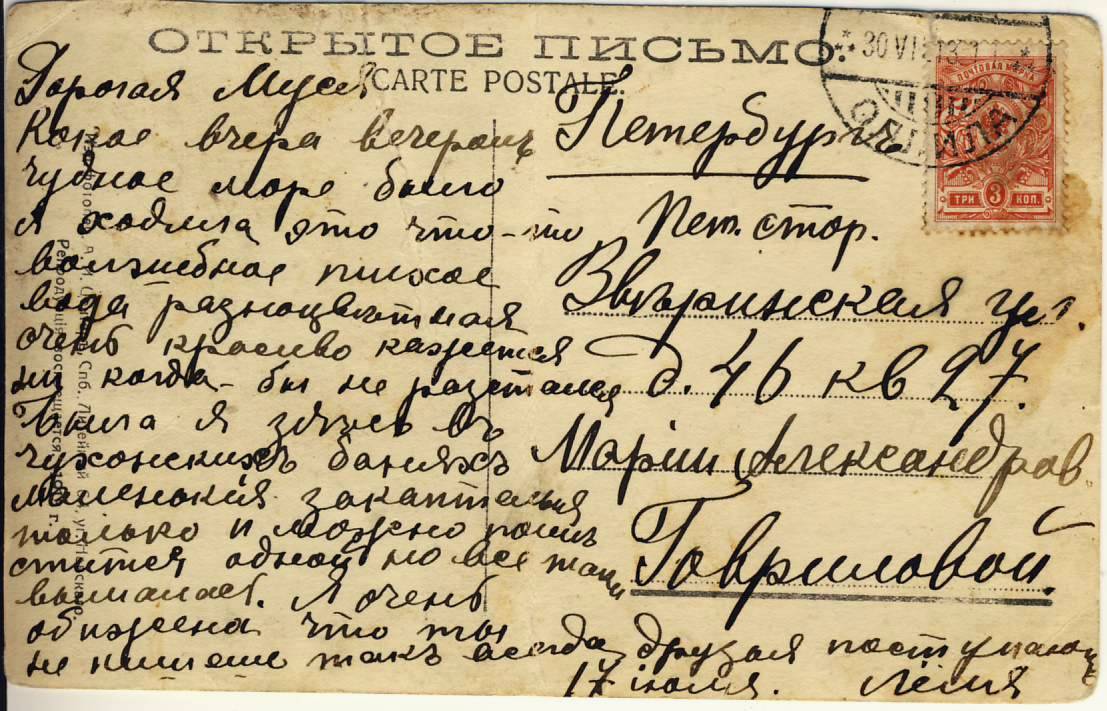 ОТКРЫТОЕ ПИСЬМО.
CARTE POSTALE.
Дорогая Муся
Какое вчера вечеромъ
чудное море было
я ходила это что-то
волшебное тихое
вода разноцвѣтная
очень красиво кажется
ни когда-бы не разсталася
Была я здѣсь въ
чухонскихъ баняхъ
маленькія закаптелыя
только и можно помѣ
стится одной но все таки
вымылась. Я очень
обижена что ты
не пишеш такъ всегда друзья поступають
17 іюля. Лёля
Петербургъ
Пет. стор.
Звѣринская ул.
д. 46 кв 27.
Маріи Александров.
Гавриловой.
ПОЧТОВАЯ МАРКА
ТРИ 3 КОП.
30 VII